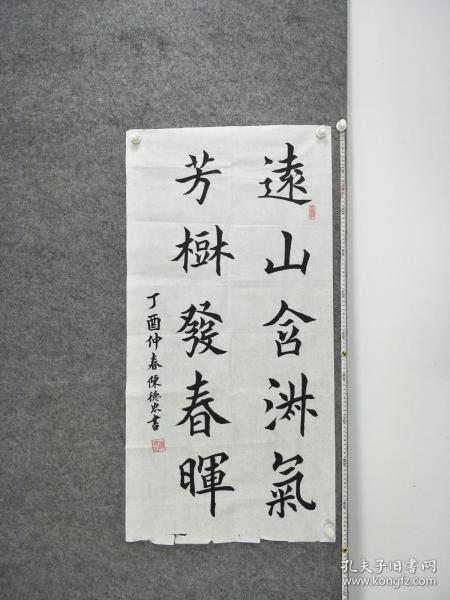 遠山含淑氣
芳樹發春暉
丁酉仲春陳德忠書
孔夫子旧书网
kongfz.com